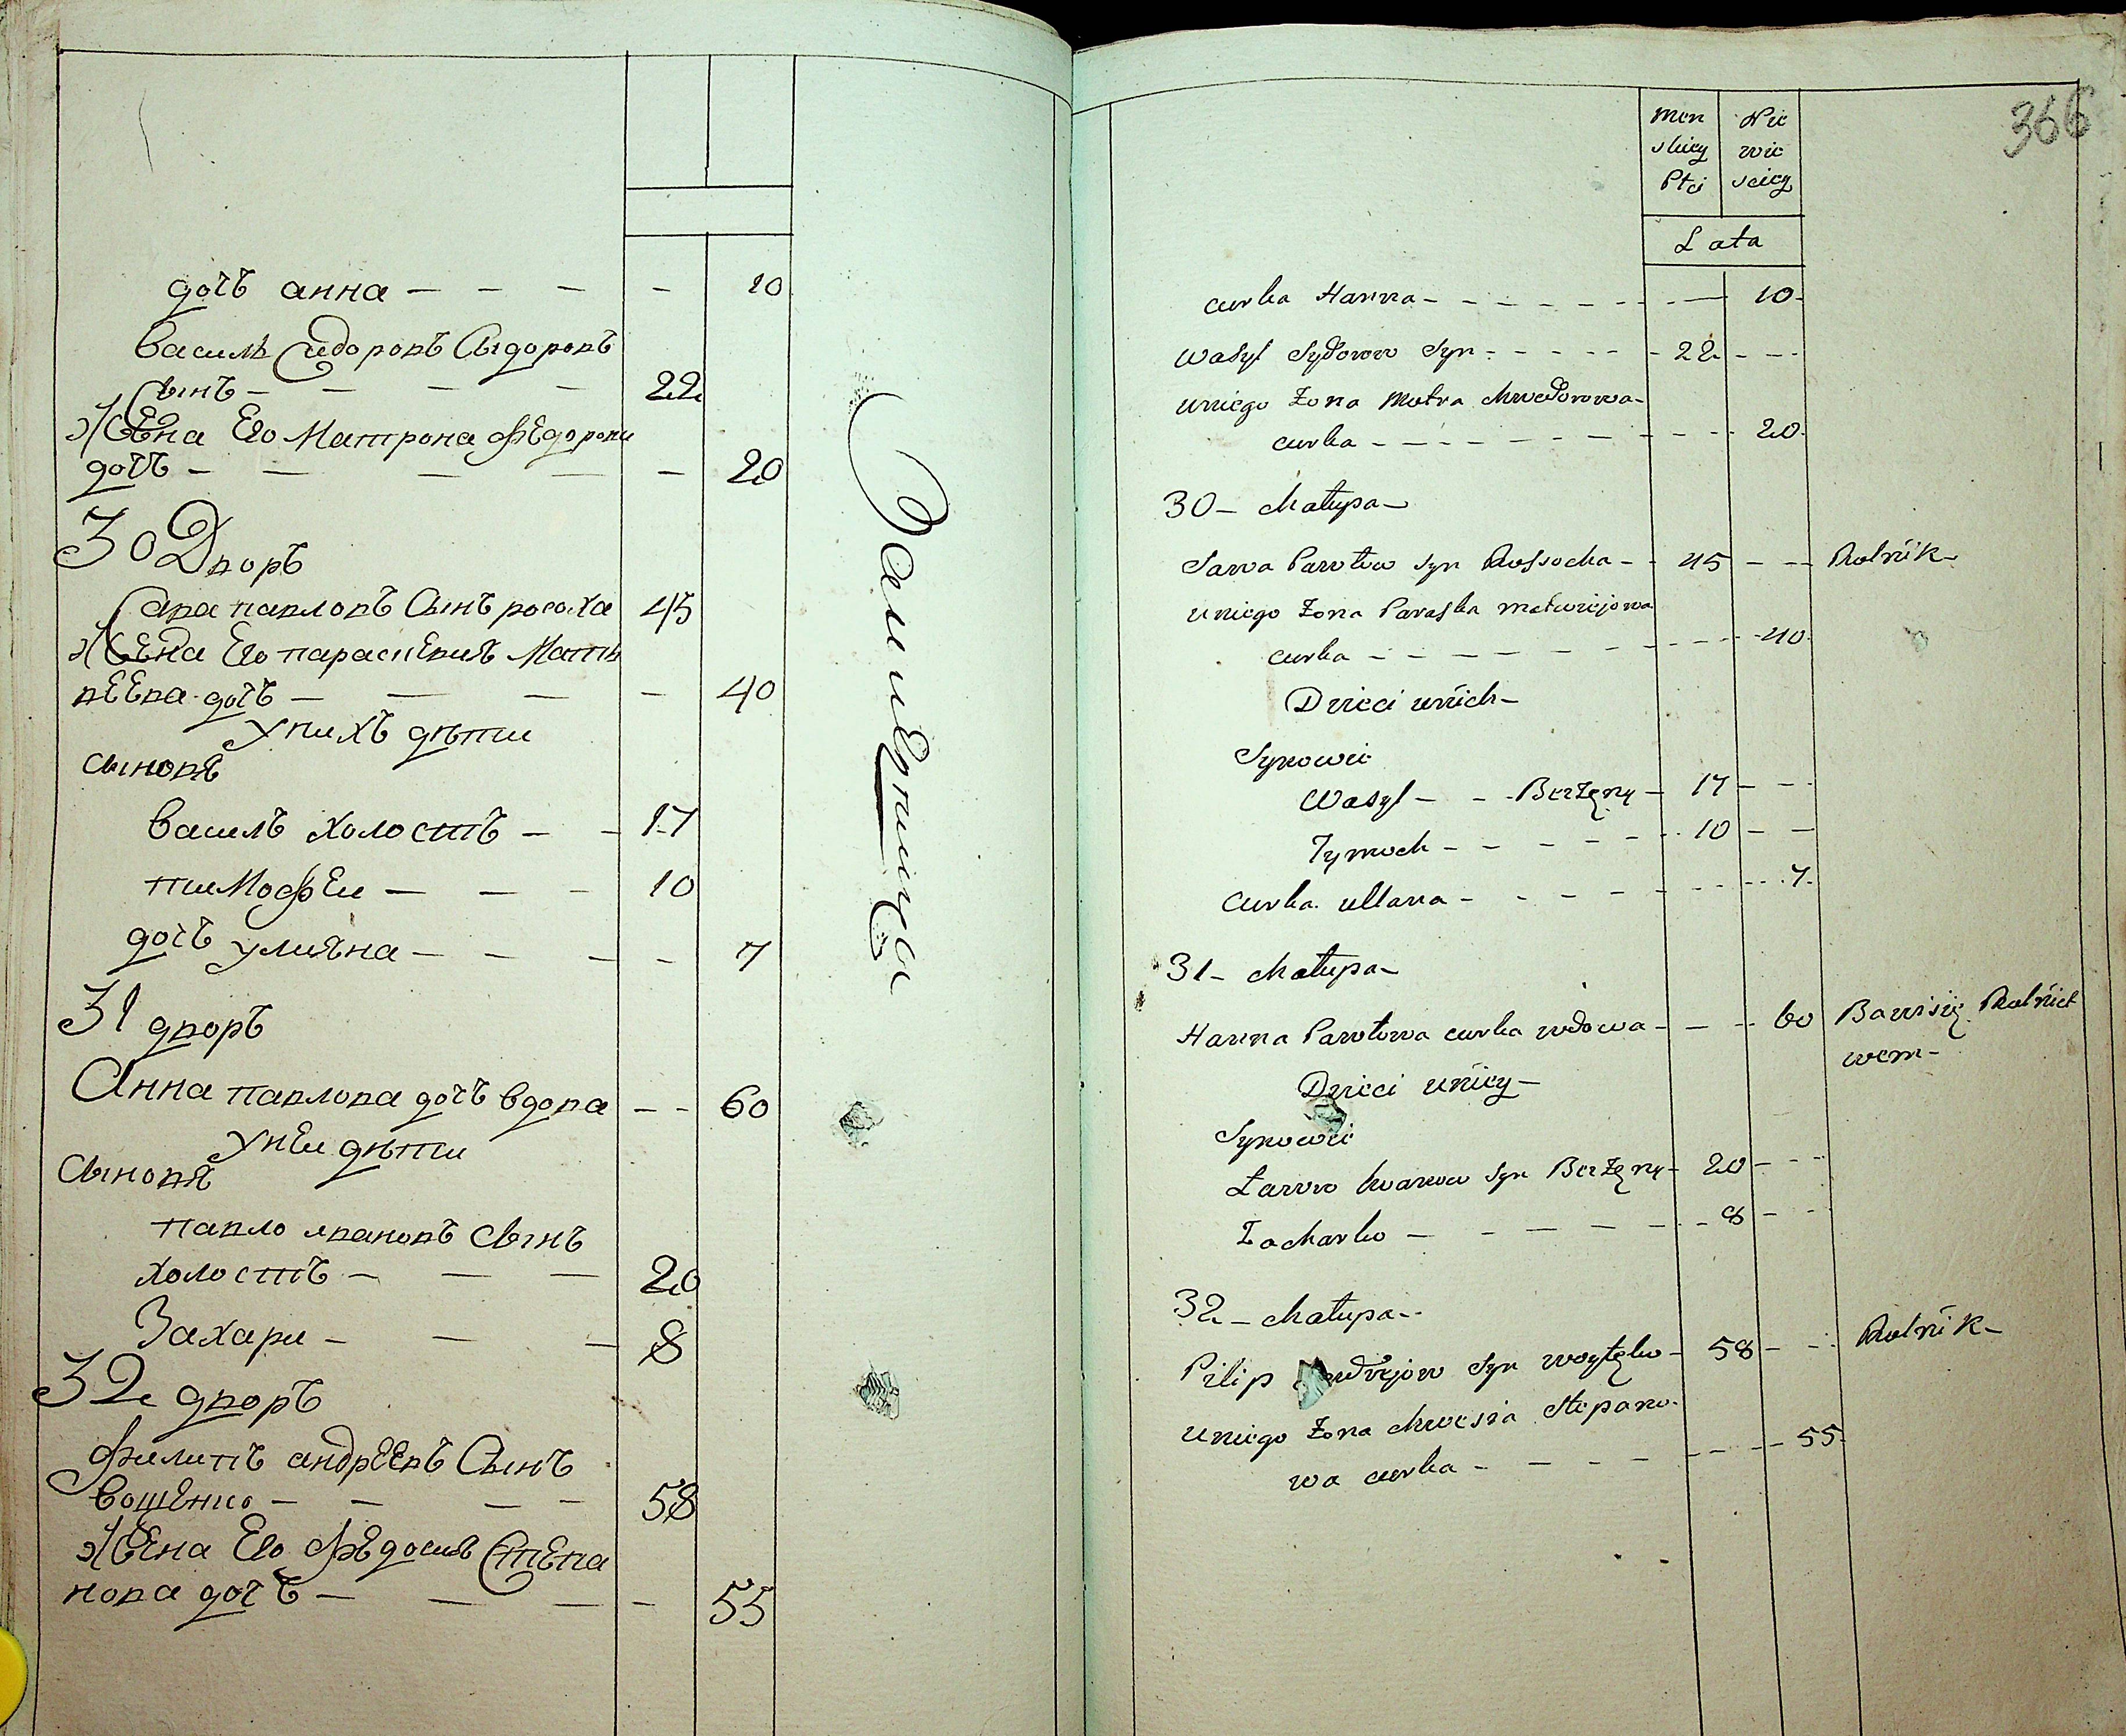 дочъ анна — — — — 10
василь Сидоровъ Сыдоровъ
Сынъ — — — — 22
Жена Его Матрона Федорови
дочъ — — — — — 20
30 Дворъ
Сава павловъ Сынъ росоха 45
Жена Его параскевия Матв
веева дочъ — — — — 40
У них дѣти
сыновя
василъ холостъ — — 17
тимофеи — — — 10
дочъ улияна — — — — 7
31 дворъ
Анна павлова дочъ вдова — — 60
У неи дѣти
Сыновя
павло ивановъ Сынъ
холостъ — — — 20
Захари — — — 8
32 дворъ
филипъ андреевъ Сынъ
вощенко — — — — 58
Жена Его Федосия Степа
нова дочъ — — — — 55
366
Men Nie
skiey wie
Płci sciey
Lata
curka Hanna — — — 10
Wasyl Sydorow Syn — — 22 — —
uniego Żona Motra Chwedorowa
curka — — — 20
30 — Chałupa —
Sawa Pawłow syn Rossocha — 45 — — Rolnik —
uniego Żona Paraska matwiejowa
curka — — — 40
Dzieci unich —
Synowie
Wasyl — — Bezżęny — 17 — —
Tymoch — — — 10 — —
Curka ullana — — — 7
31 — Chałupa —
Hanna Pawłowa curka wdowa — — — 60 Bawi się Rolnict
wem —
Dzieci uniey —
Synowie
Iwanow Syn Bezżęny — 20 — —
Zacharko — — — 8 — —
32 — Chałupa —
Pilip Andrejow Syn — 58 — — Rolnik —
uniego Żona Chwesia Stepano
wa curka — — — 55